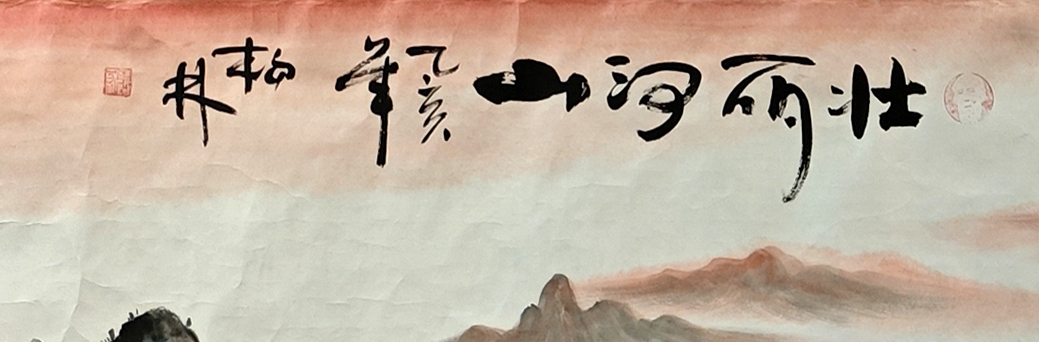 壮丽河山
乙亥年
柏林